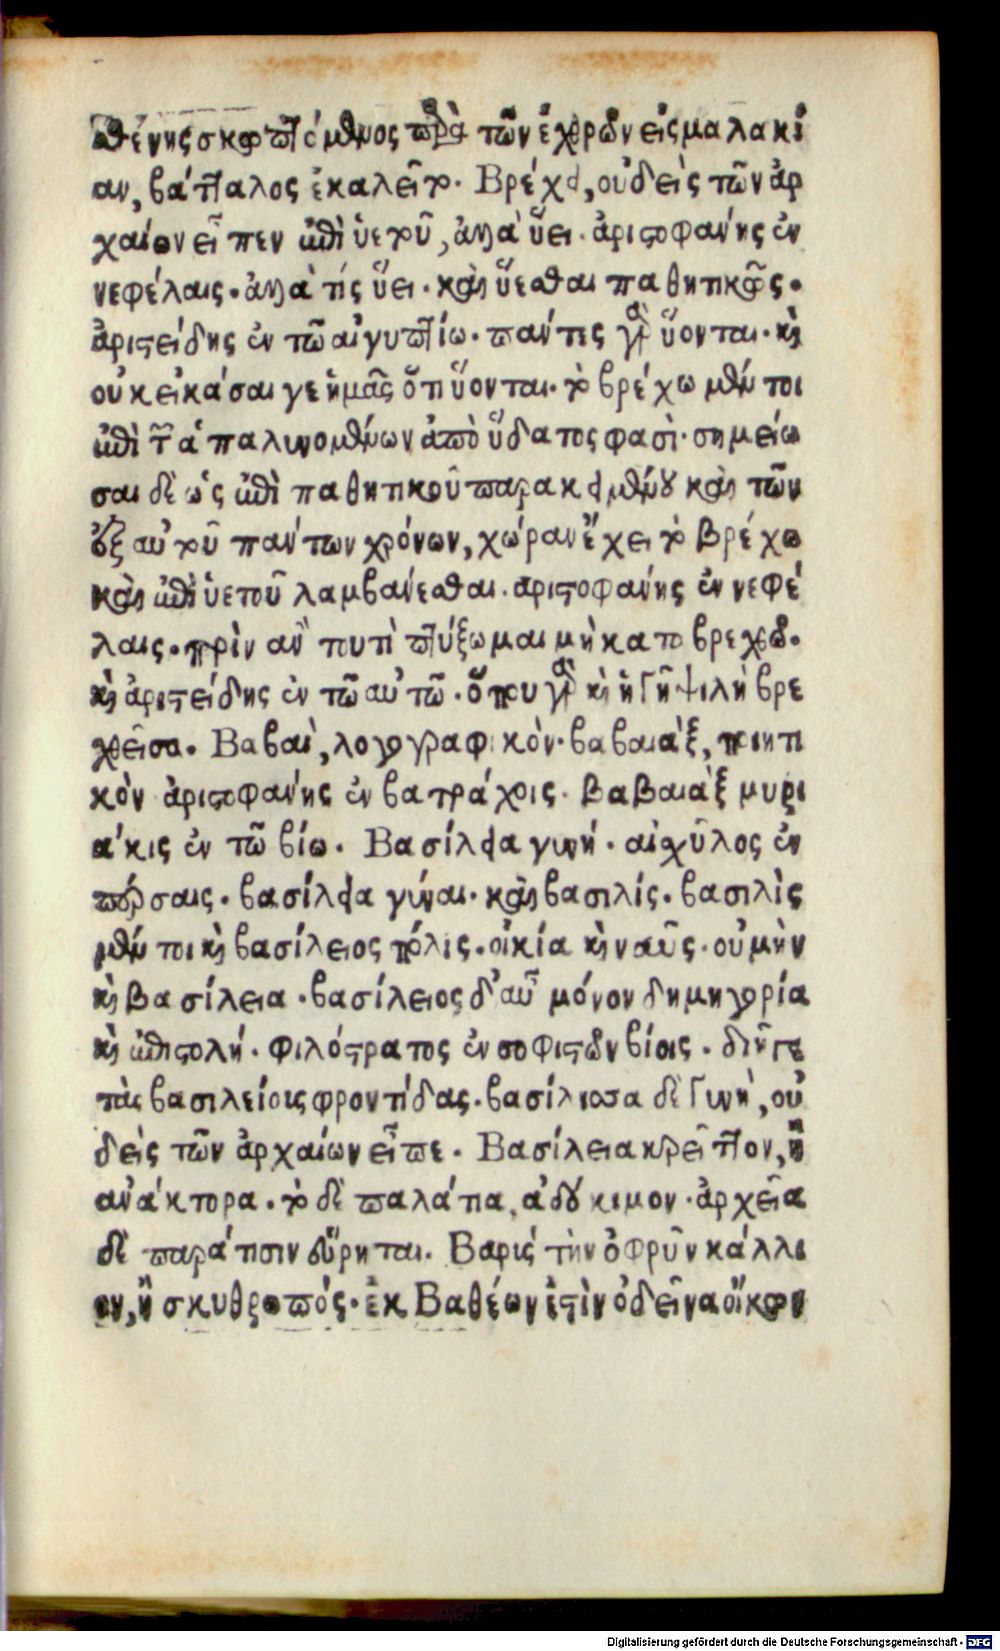 σθένης σκωπτόμενος παρὰ τῶν ἐχθρῶν εἰς μαλακί
αν, βάτταλος ἐκαλεῖτο. Βρέχει, οὐδεὶς τῶν ἀρ
χαίων εἶπεν ἐπὶ ὑετοῦ, ἀλλὰ ὕει. ἀριστοφάνης ἐν
νεφέλαις. ἀλλὰ τίς ὕει. καὶ ὕεσθαι παθητικῶς.
ἀριστείδης ἐν τῶ αἰγυπτίω. πάντες γὰρ ὕονται. καὶ
οὐκ εἰκάσαι γε ἡμᾶς ὅτι ὕονται. τὸ βρέχω μέν τοι
ἐπὶ τῶν ἁπαλυνομένων ἀπὸ ὕδατος φασὶ. σημείω
σαι δὲ ὡς ἐπὶ παθητικοῦ παρακειμένου καὶ τῶν
ἐξ αὐτοῦ πάντων χρόνων, χώραν ἔχει τὸ βρέχω
καὶ ἐπὶ ὑετοῦ λαμβάνεσθαι. ἀριστοφάνης ἐν νεφέ
λαις. πρὶν ἂν τουτὶ πτύξωμαι μὴ καταβρεχθῶ.
καὶ ἀριστείδης ἐν τῶ αὐτῶ. ὅπου γὰρ καὶ ἡ γῆ ψιλὴ βρε
χθεῖσα. Βαβαὶ, λογογραφικόν. βαβαιὰξ, ποιητι
κὸν ἀριστοφάνης ἐν βατράχοις. βαβαιὰξ μυρι
άκις ἐν τῶ βίω. Βασίλεια γυνή. αἰσχῦλος ἐν
πέρσαις. βασίλεια γύναι. καὶ βασιλίς. βασιλὶς
μέν τοι καὶ βασίλειος πόλις. οἰκία καὶ ναῦς. οὐ μὴν
καὶ βασίλεια. βασίλειος δ' αὖ μόνον δημηγορία
καὶ ἐπιστολή. φιλόστρατος ἐν σοφιστῶν βίοις. διῆγε
τὰς βασιλείους φροντίδας. βασίλισσα δὲ γυνὴ, οὐ
δεὶς τῶν ἀρχαίων εἶπε. Βασίλεια κρεῖττον, ἢ
ἀνάκτορα. τὸ δὲ παλάτια, ἀδόκιμον. ἀρχεῖα
δὲ παρά τισιν εὕρηται. Βαρὺς τὴν ὀφρῦν κάλλι
ον, ἢ σκυθρωπός. ἐκ Βαθέων ἐστὶν ὁ δεῖνα οἴκων
Digitalisierung gefördert durch die Deutsche Forschungsgemeinschaft - DFG